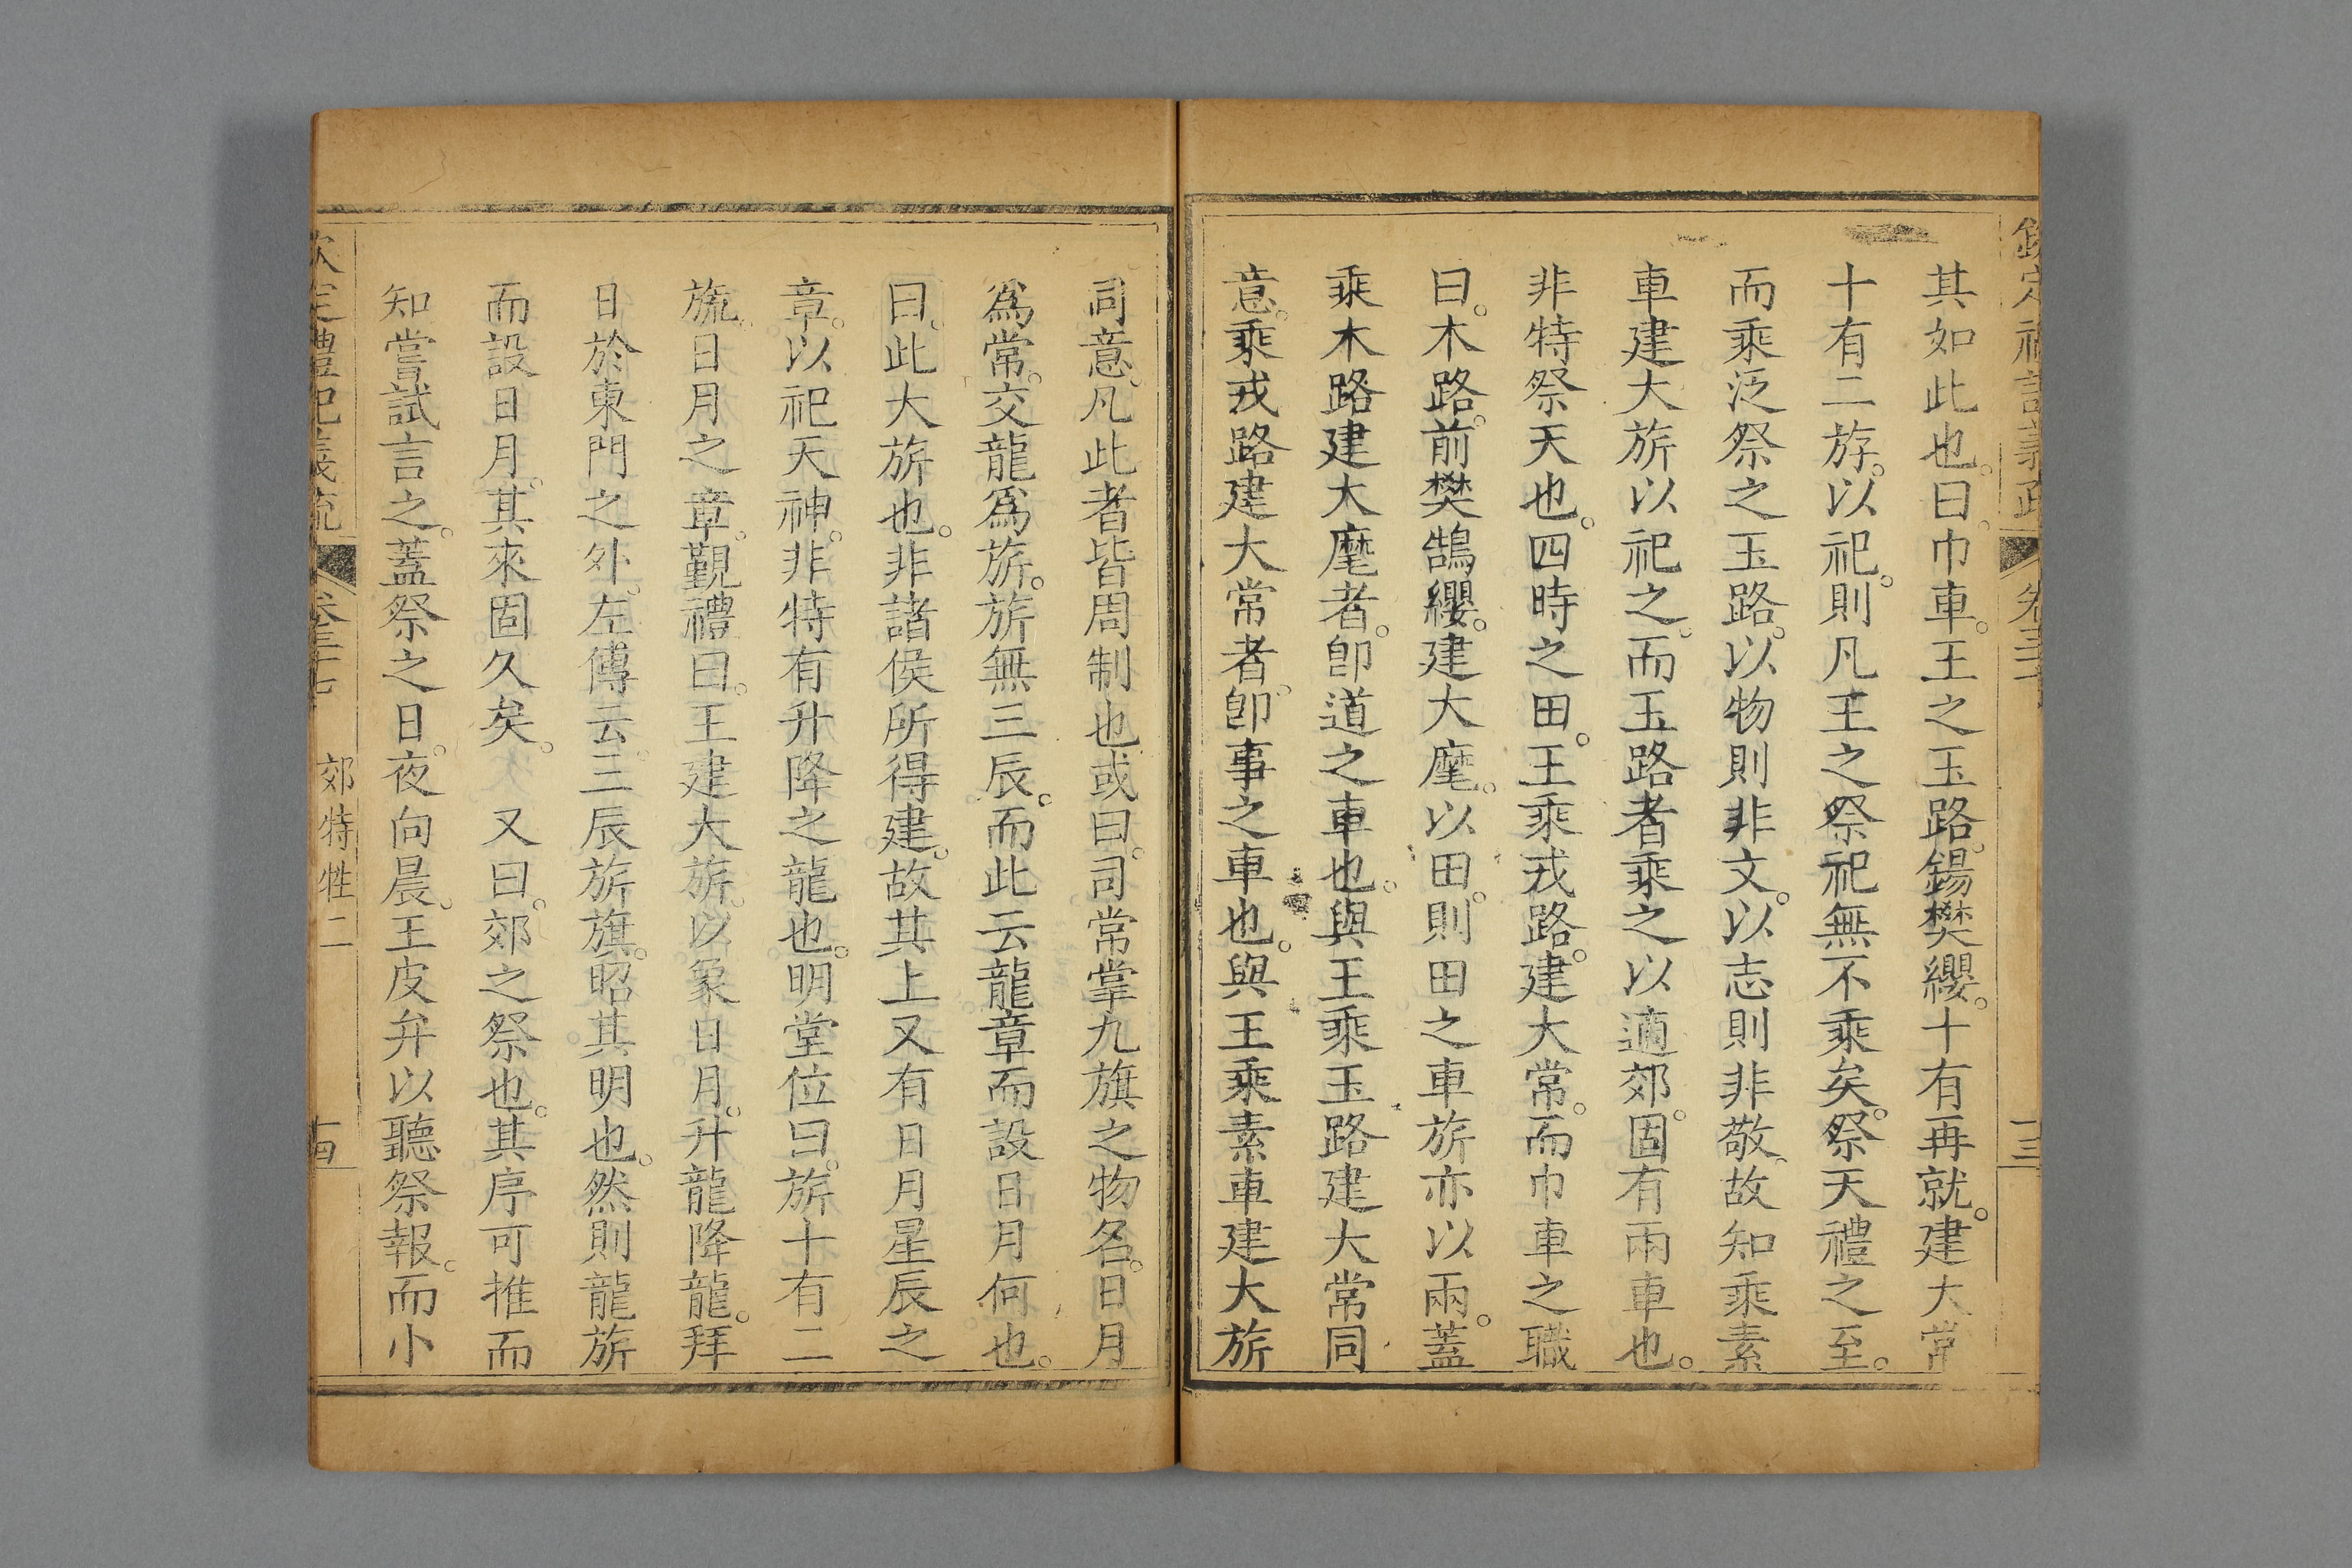 其如此也。曰。巾車。王之玉路。鍚樊纓。十有再就。建大常
十有二斿。以祀。則凡王之祭祀無不乘矣。祭天禮之至。
而乘泛祭之玉路。以物則非文。以志則非敬。故知乘素
車建大旂以祀之。而玉路者乘之以適郊。固有兩車也。
非特祭天也。四時之田。王乘戎路。建大常。而巾車之職
曰。木路。前樊鵠纓。建大麾。以田。則田之車旂亦以兩。蓋
乘木路建大麾者。卽道之車也。與王乘玉路建大常同
意。乘戎路建大常者。卽事之車也。與王乘素車建大旂
同意。凡此者皆周制也。或曰。司常掌九旗之物名。日月
爲常。交龍爲旂。旂無三辰。而此云龍章而設日月何也。
曰。此大旂也。非諸侯所得建。故其上又有日月星辰之
章。以祀天神。非特有升降之龍也。明堂位曰。旂十有二
旒。日月之章。覲禮曰。王建大旂。以象日月。升龍降龍。拜
日於東門之外。左傳云。三辰旂旗。昭其明也。然則龍旂
而設日月。其來固久矣。 又曰。郊之祭也。其序可推而
知嘗試言之。蓋祭之日。夜向晨。王皮弁以聽祭報。而小
郊特牲二